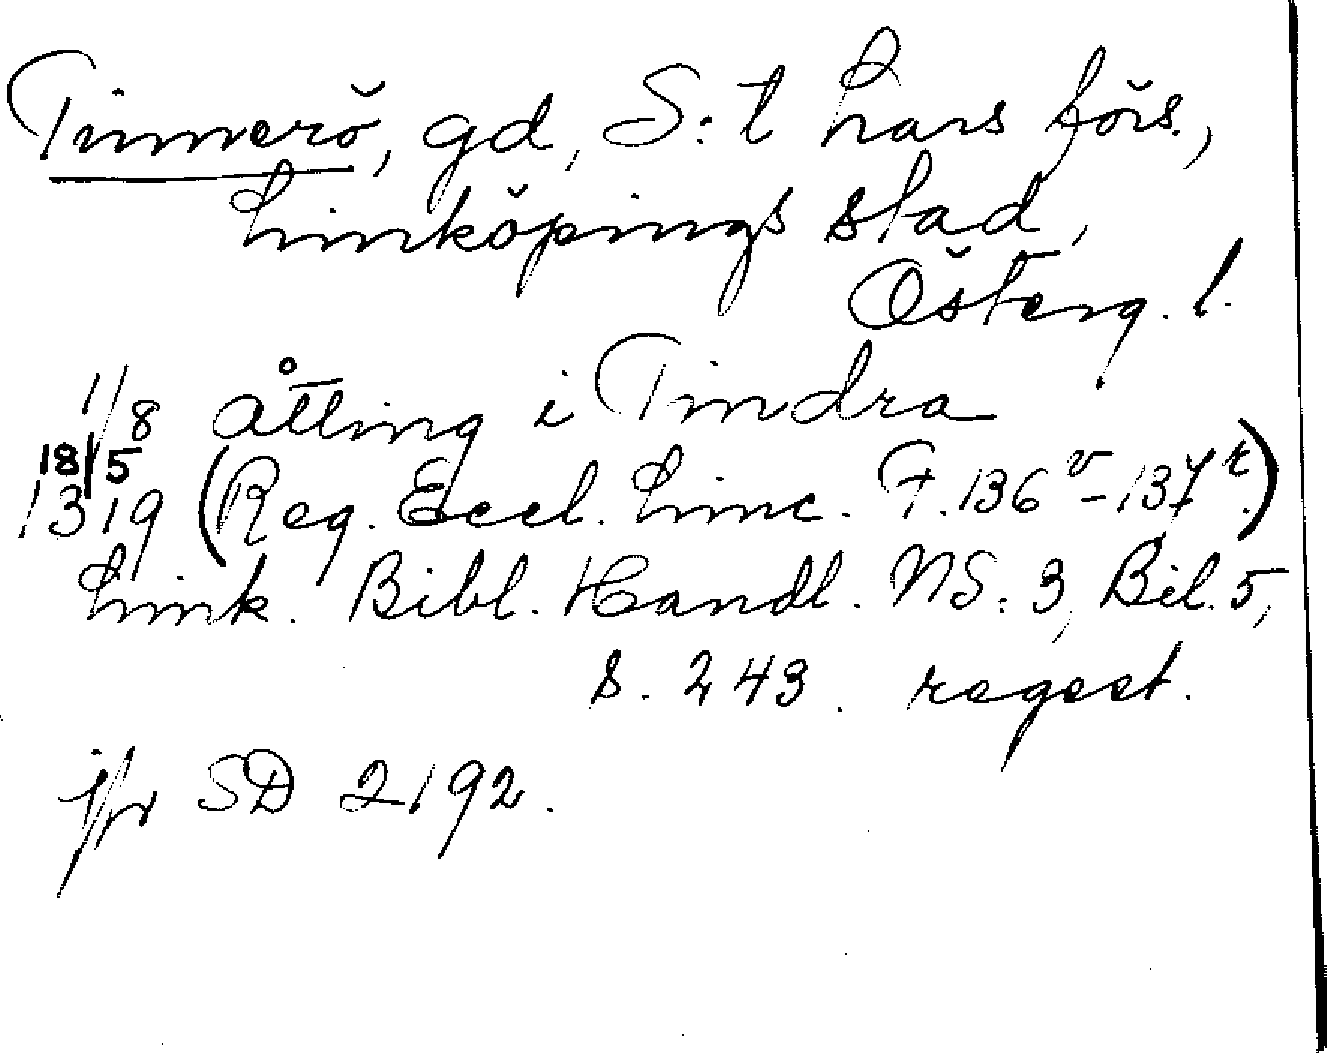 Tinnerö, gd, S:t Lars förs.,
Linköpings stad,
Österg. l.
1/8 åtting i Tindra
18/5
1319 (Reg. Eccl. Linc. F. 136v-137r.)
Link. Bibl. Handl. NS: 3, Bil. 5,
s. 243. regest.
jfr SD 2192.